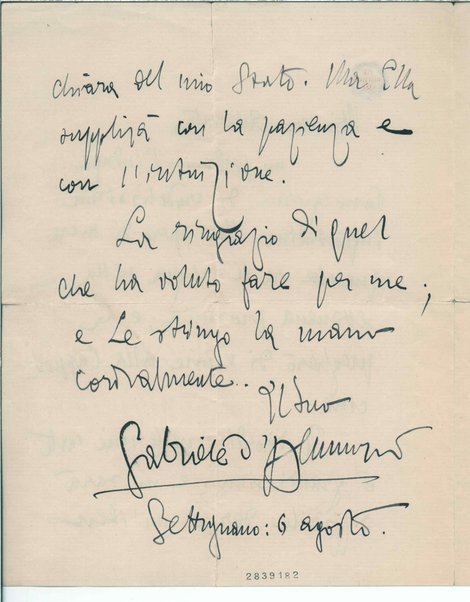 chiara del mio Stato. Ma Ella
supplirà con la pazienza e
con l'intuizione.
La ringrazio di quel
che ha voluto fare per me;
e Le stringo la mano
cordialmente.
Il Suo
Gabriele d'Annunzio
Settignano: 6 agosto.
2839182